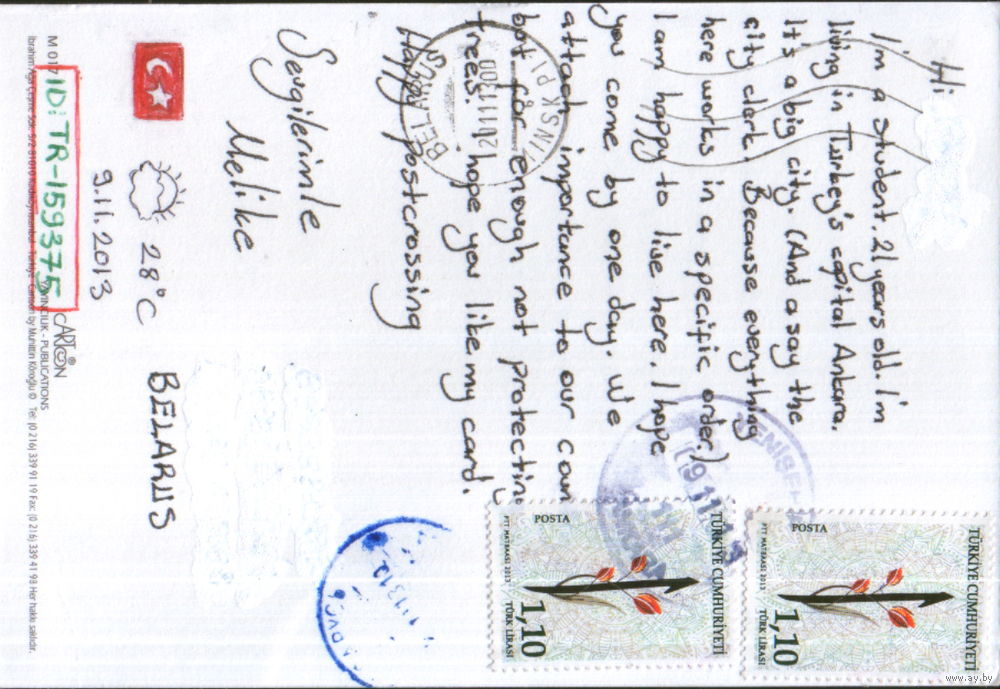 Hi:
I'm a student. 21 years old. I'm
living in Turkey's capital Ankara.
It's a big city. (And a say the
city clerk. Because everything
here works in a specific order.)
I am happy to live here. I hope
you come by one day. We
attach importance to our coun
but for enough not protecting
trees. I hope you like my card.
Happy postcrossing
Sevgilerimle
Melike
28°C
9.11.2013
ID: TR-1593375
BELARUS
MINSK PI
26111300
BELARUS
YENİŞEH
19.11.1
TÜRKİYE CUMHURİYETİ
POSTA
1,10
TÜRK LİRASI
PTT MATBAASI 2013
TÜRKİYE CUMHURİYETİ
POSTA
1,10
TÜRK LİRASI
PTT MATBAASI 2013
CARTON
YAYINCILIK - PUBLICATIONS
Tel: (0 216) 339 91 19 Fax: (0 216) 339 41 98 Her hakkı saklıdır.
www.ay.by